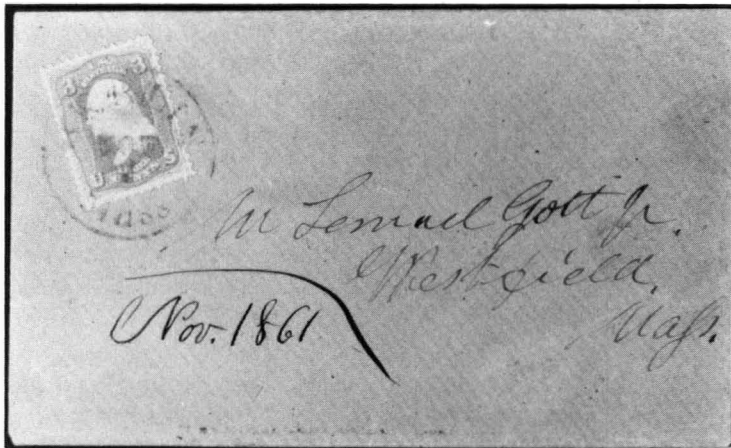 3 3
M Lemuel Gott Jr.
Westfield,
Mass.
Nov. 1861